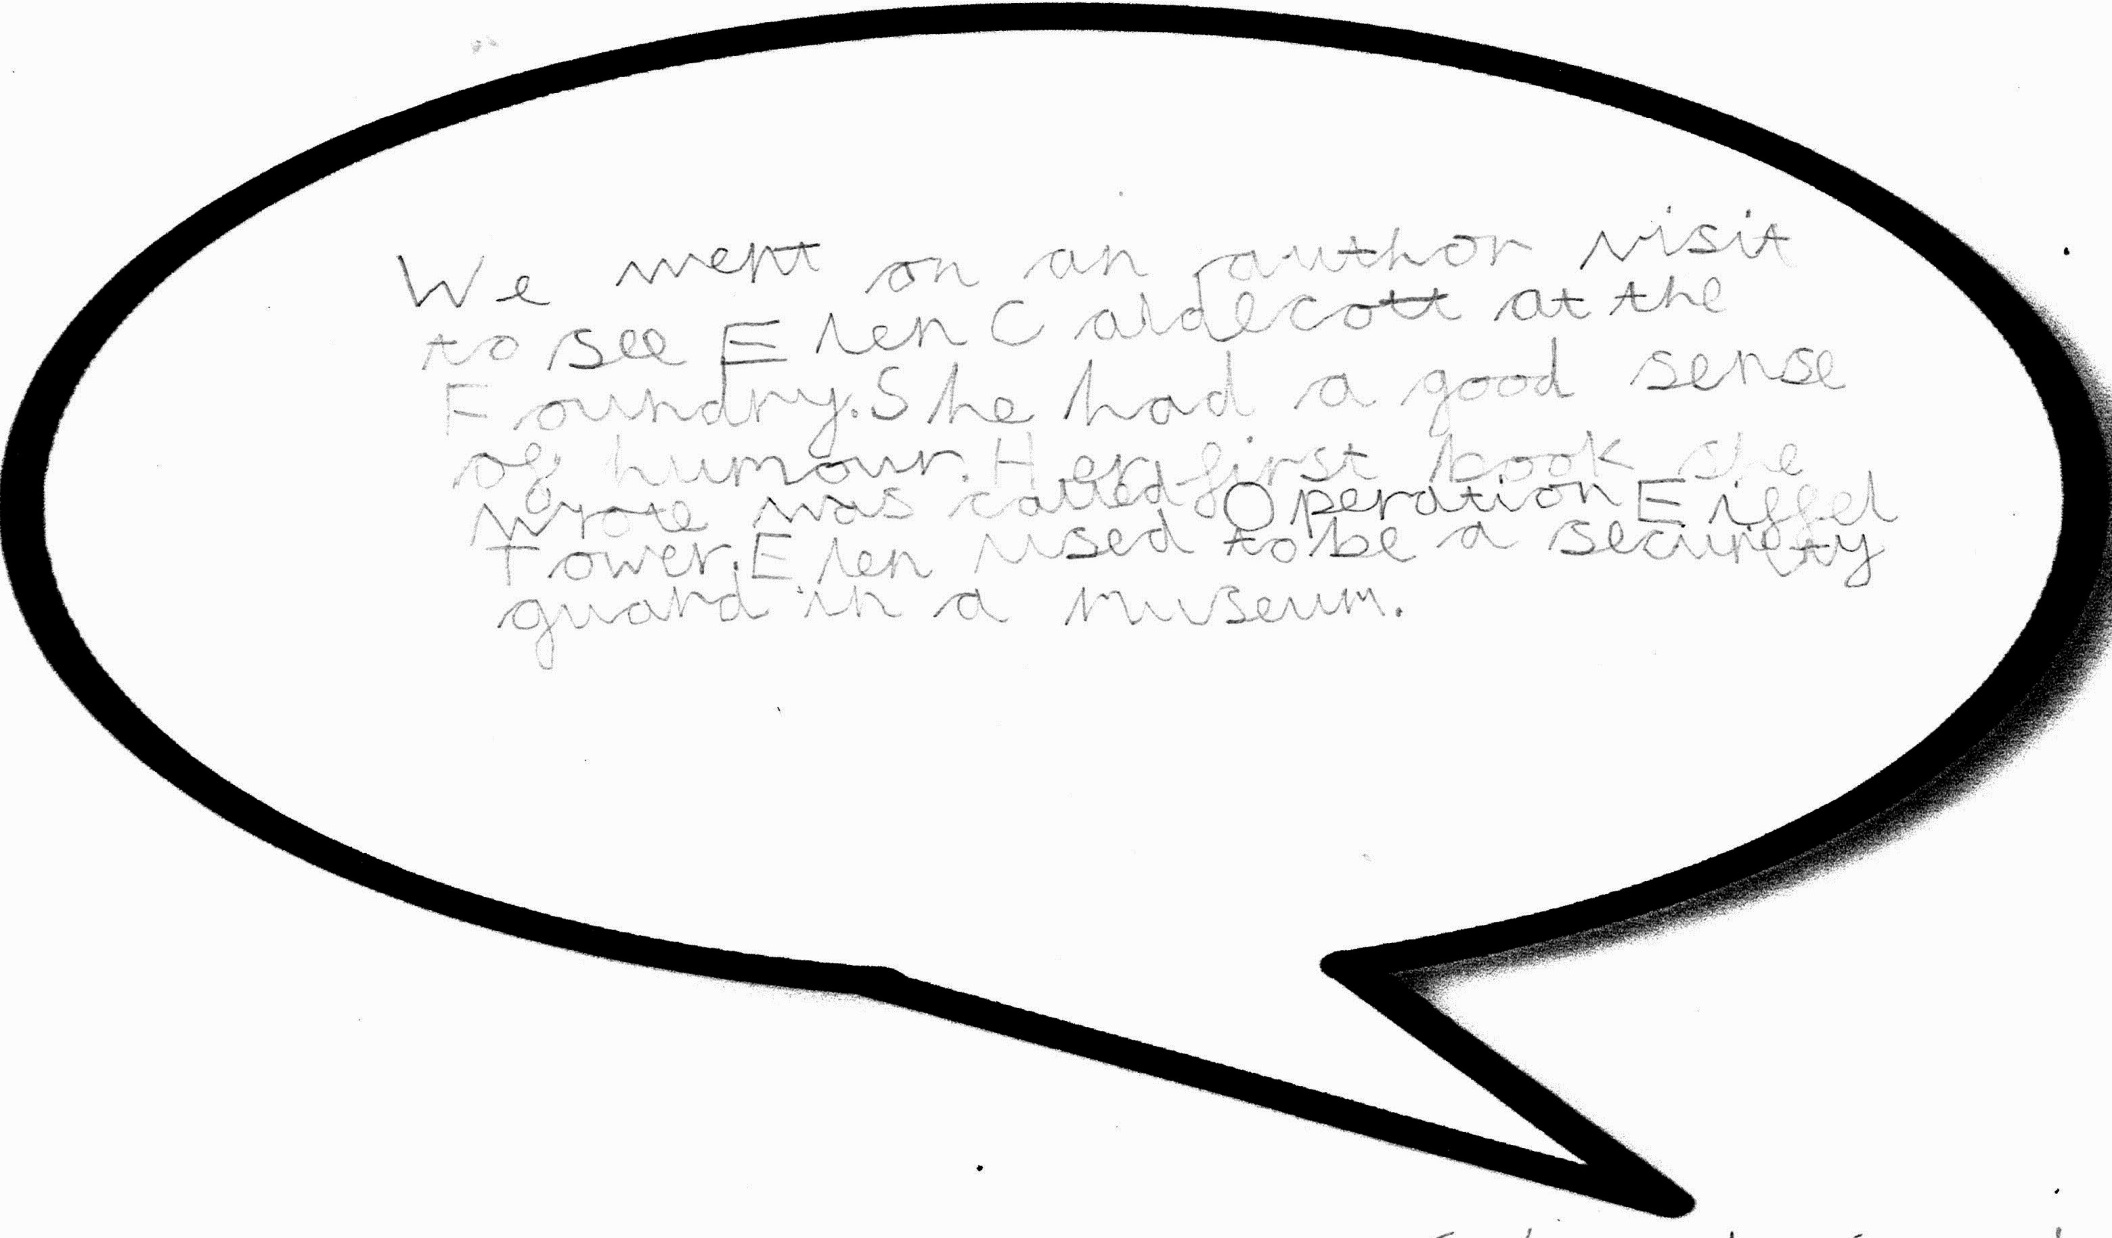 We went on an author visit
to see Elen Caldecott at the
Foundry. She had a good sense
of humour. Her first book she
wrote was called Operation Eiffel
Tower. Elen used to be a security
guard in a museum.